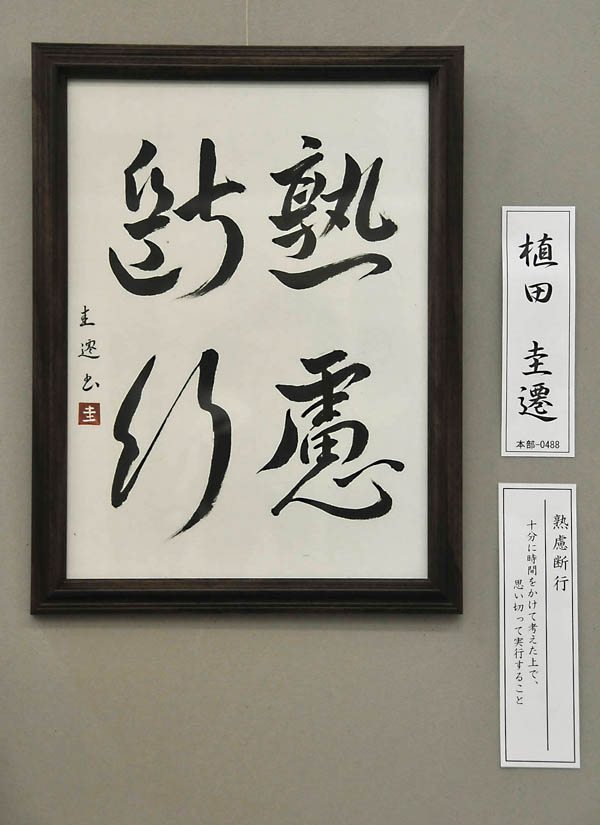 熟慮
斷行
圭遷書
圭
植田 圭遷
本部-0488
熟慮断行
十分に時間をかけて考えた上で、
思い切って実行すること